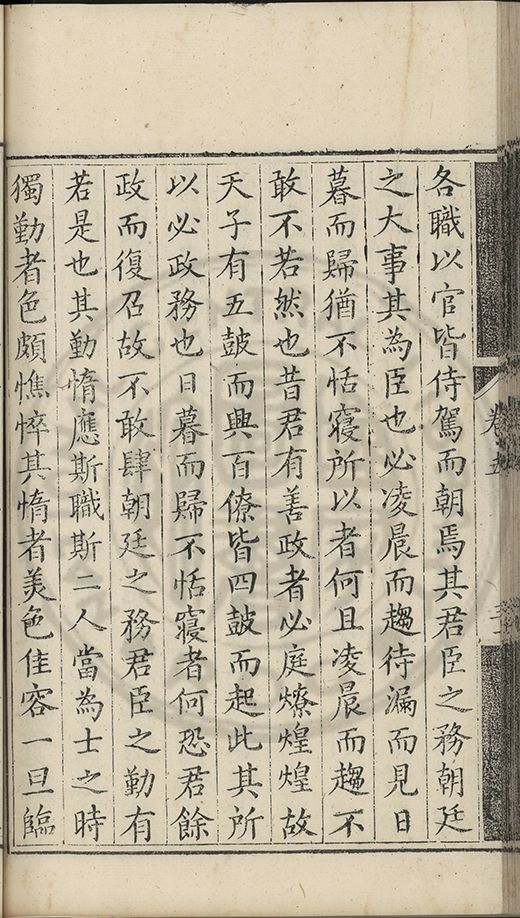 各職以官皆侍駕而朝焉其君臣之務朝廷
之大事其為臣也必凌晨而趨待漏而見日
暮而歸猶不恬寢所以者何且凌晨而趨不
敢不若然也昔君有善政者必庭燎煌煌故
天子有五鼓而興百僚皆四鼓而起此其所
以必政務也日暮而歸不恬寢者何恐君餘
政而復召故不敢肆朝廷之務君臣之勤有
若是也其勤惰應斯職斯二人當為士之時
獨勤者色頗憔悴其惰者美色佳容一旦臨
卷五